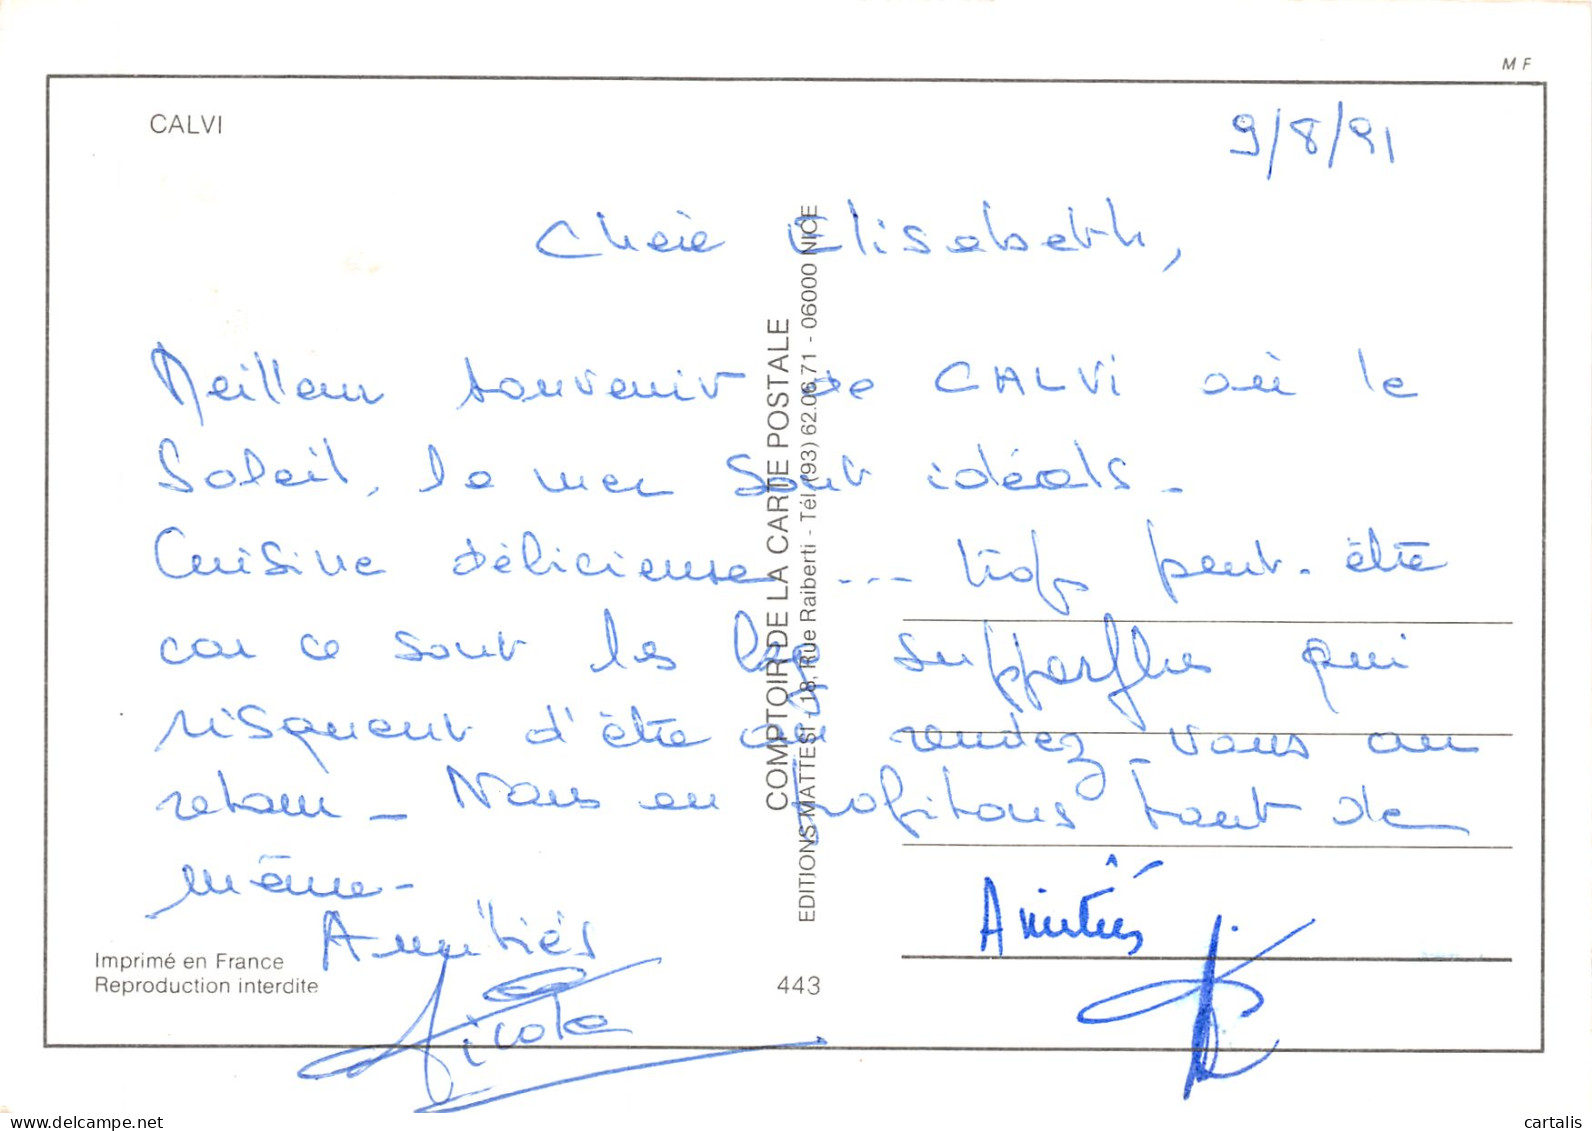 M F
CALVI
9/8/91
Chère Elisabeth,
Meilleur souvenir de CALVI où le
Soleil, la mer sont idéals.
Cuisine délicieuse --- trop peut-être
car ce sont les kgs supperflus qui
risquent d'être au rendez-vous au
retour - Nous en profitons tout de
même -
Amitiés
Nicole
Amitiés
COMPTOIR DE LA CARTE POSTALE
EDITIONS MATTESI - 18, Rue Raiberti - Tél. (93) 62.06.71 - 06000 NICE
Imprimé en France
Reproduction interdite
443
www.delcampe.net
cartalis